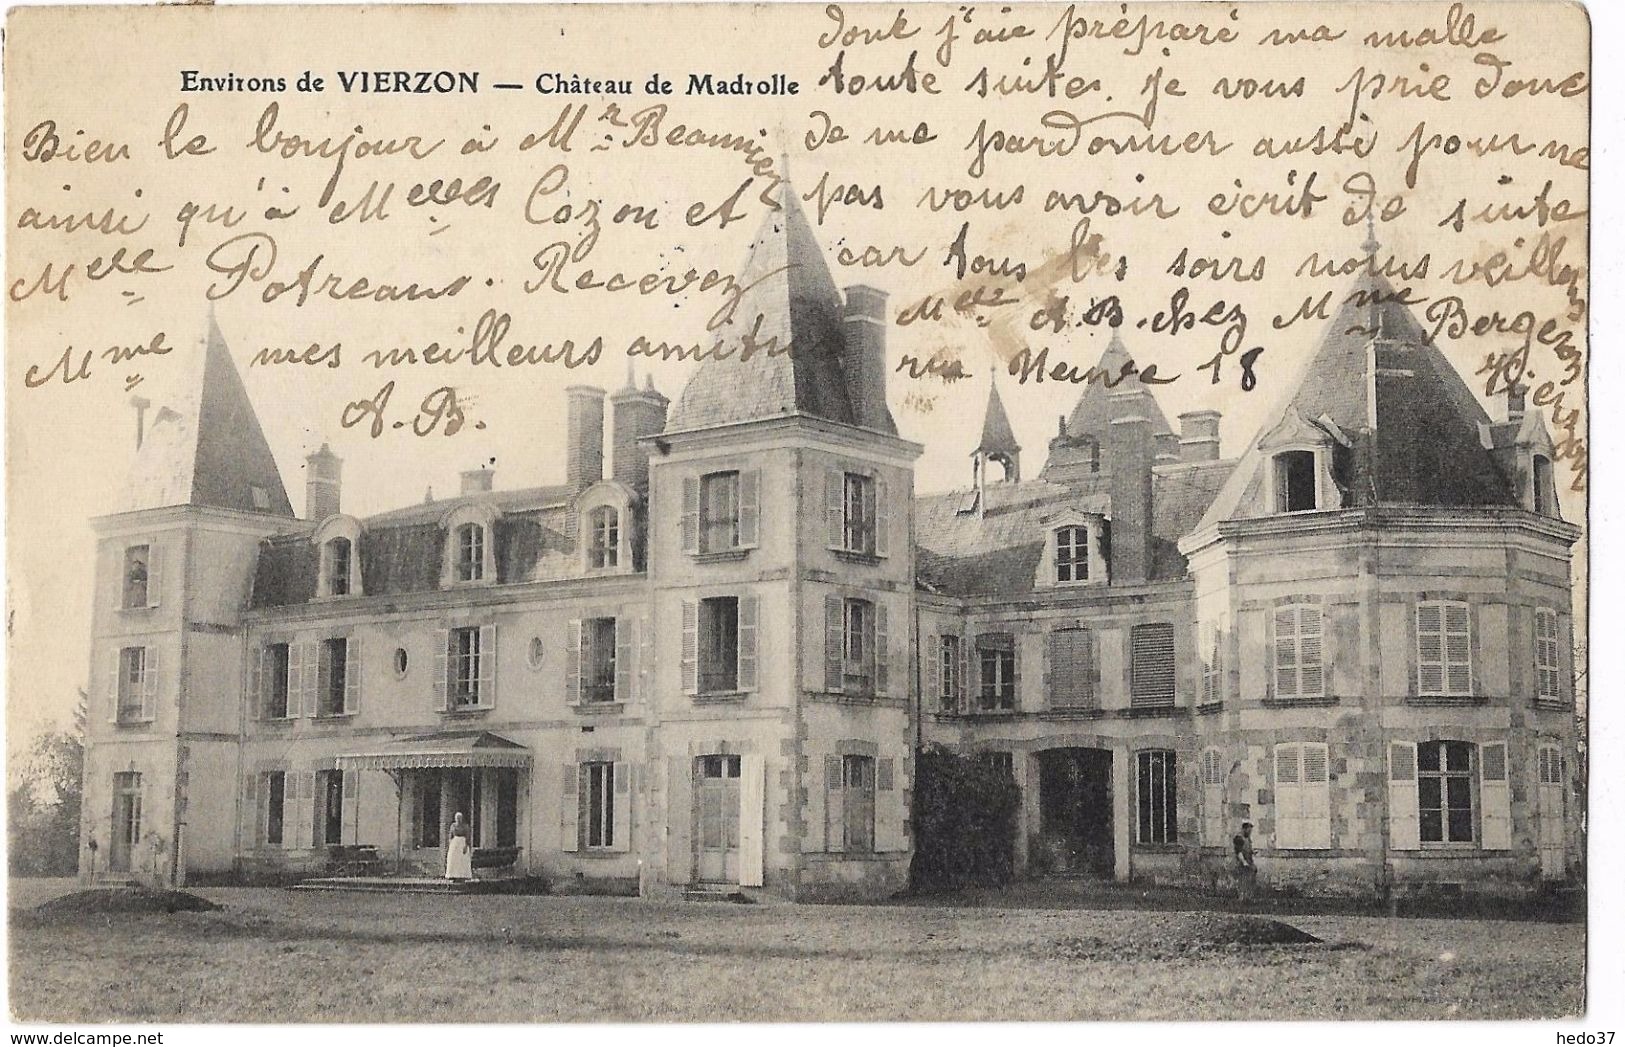 donc j'aie préparé ma malle
toute suite. je vous prie donc
de me pardonner aussi pour ne
pas vous avoir écrit de suite
car tous les soirs nous veillons
Melle A.B. chez Mme Bergeron
rue Neuve 18 Vierzon
Environs de VIERZON — Château de Madrolle
Bien le bonjour à Mr Beaunier
ainsi qu'à Melles Cozon et
Melle Potreau. Recevez
Mme mes meilleurs amitiés
A.B.
hedo37